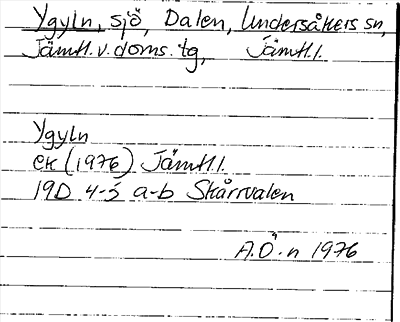 Ygyln, sjö, Dalen, Undersåkers sn,
Jämtl. v. doms. tg, Jämtl.l.
Ygyln
ek (1976) Jämtl.l.
19D 4-5 a-b Skårrvalen
A.Ö-n 1976